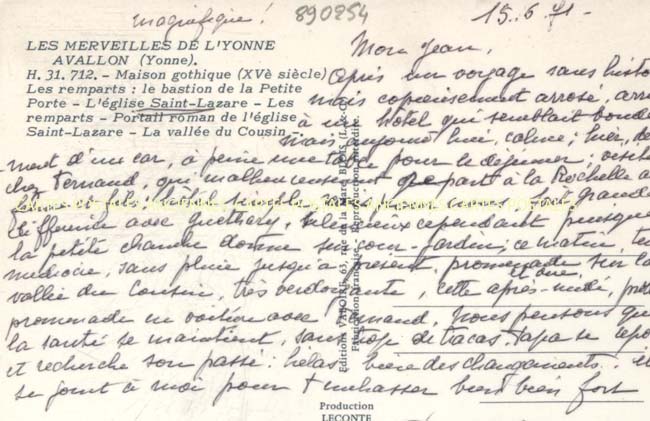 magnifique !
890254
15.6.71-
LES MERVEILLES DE L'YONNE
AVALLON (Yonne).
H. 31.712. - Maison gothique (XVè siècle)
Les remparts : le bastion de la Petite
Porte - L'église Saint-Lazare - Les
remparts - Portail roman de l'église
Saint-Lazare - La vallée du Cousin -.
Mon Jean,
Après un voyage sans histoi
mais copieusement arrosé, arri
à un hôtel qui semblait bondé
mais aujourd'hui, calme; hier, de
-ment d'un car, à peine une table pour le déjeuner; visite
chez Fernand, qui malheureusement part à la Rochelle
CARTES POSTALES ANCIENNES CARTES POSTALES ANCIENNES CARTES POSTALES
grande
différence avec Guéthary, silencieux cependant puisque
la petite chambre donne sur cour-jardin; ce matin, te
médiocre, sans pluie jusqu'à présent, promenade sur la
vallée du Cousin, très verdoyante, cette après-midi, peti
promenade en voiture avec Fernand. Nous pensons que
la santé se maintient, sans trop de tracas. Papa se
et recherche son passé: hélas bien des changements.
se joint à moi pour t'embrasser bien bien fort
Editions VALOIRE, 63, rue de la Mare BLOIS (L.-&-C.)
Fabrication Française - Reproduction interdite.
Production
LECONTE